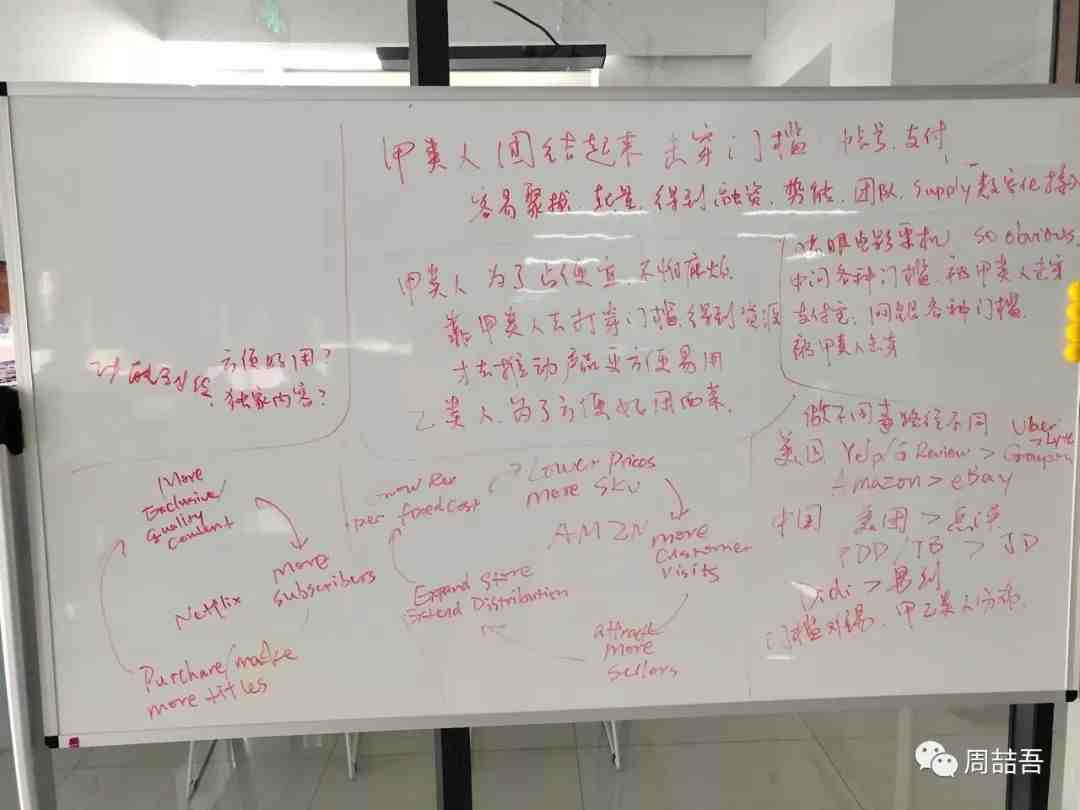 甲类人团结起来 击穿门槛 帐号、支付
容易聚拢、起量、得到融资、势能、团队、supply 数字化接入
甲类人 为了占便宜 不怕麻烦
靠甲类人去打穿门槛,得到资源
才去推动产品更方便易用
乙类人 为了方便好用而来
电影票机 so obvious
中间各种门槛,被甲类人击穿
支付宝、网银各种门槛,
被甲类人击穿
方便好用?
独家内容?
做不同事路径不同
美国 Yelp/G Review > Groupon
Uber > Lyft
Amazon > eBay
中国 美团 > 点评
PDD/TB > JD
Didi > 易到
门槛 甲乙类人分布
More
Exclusive/
quality
content
more
subscribers
Netflix
Purchase/make
more titles
Grow Rev
per fixed cost
Lower Prices
more SKU
AMZN
more
customer
visits
attract
more
sellers
Expand Store
Extend Distribution
...
周喆吾